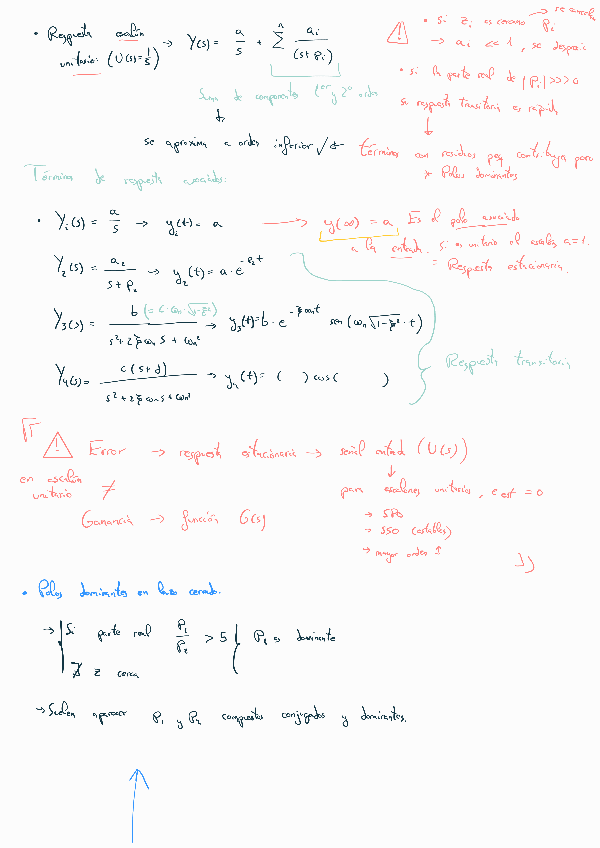 • Respuesta escalón
unitario: (U(s)=1/s) → Y(s) = a/s + Σ^n ai/(s+pi)
Suma de componentes 1er y 2º orden
↓
se aproxima a orden inferior √
⚠ • Si zi es cercano pi → se cancela
→ ai << 1, se desprecia
• si la parte real de |Pi| >>> 0
su respuesta transitoria es rápida
↓
términos con residuos peq contribuyen poco
* Polos dominantes
Términos de respuesta asociados:
• Y1(s) = a/s → y1(t) = a → y(∞) = a Es el polo asociado
a la entrada. Si es unitario el escalón a=1.
= Respuesta estacionaria.
Y2(s) = a2/(s+P2) → y2(t) = a·e^(-P2t)
Y3(s) = b (= c·ωn·√(1-ξ²))/(s²+2ξωn s+ωn²) → y3(t) = b·e^(-ξωnt) sen(ωn√(1-ξ²)·t)
Y4(s) = c(s+d)/(s²+2ξωn s+ωn²) → y4(t) = ( ) cos( )
Respuesta transitoria
⚠ Error → respuesta estacionaria → señal entrada (U(s))
en escalón
unitario ≠
↓
para escalones unitarios, e est = 0
Ganancia → función G(s)
→ SPO
→ SSO (estables)
→ mayor orden ↑
• Polos dominantes en lazo cerrado.
→ Si parte real P1/P2 > 5 } P2 es dominante
∄ z cerca
→ Suelen aparecer P1 y P2 complejos conjugados y dominantes.